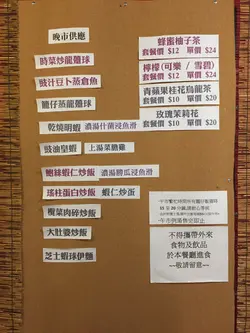 晚市供應
時菜炒龍躉球
豉汁豆卜蒸倉魚
脆仔蒸龍躉球
乾燒明蝦 濃湯什菌浸魚滑
豉油皇蝦 上湯菜膽雞
鮑絲蝦仁炒飯 濃湯勝瓜浸魚滑
瑤柱蛋白炒飯 蝦仁炒蛋
欖菜肉碎炒飯
大肚婆炒飯
芝士蝦球伊麵
蜂蜜柚子茶
套餐價 $12 單價 $24
檸檬(可樂 / 雪碧)
套餐價 $12 單價 $24
青蘋果桂花烏龍茶
套餐價 $10 單價 $20
玫瑰茉莉花
套餐價 $10 單價 $20
不得攜帶外來
食物及飲品
於本餐廳進食
---敬請留意---